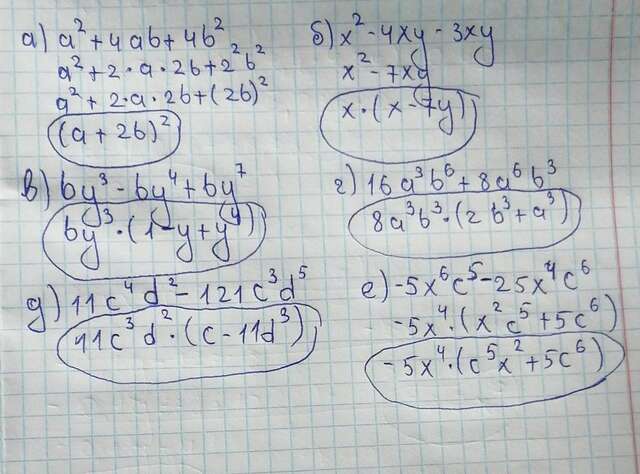 а) a² + 4ab + 4b²
a² + 2·a·2b + 2²b²
a² + 2·a·2b + (2b)²
(a + 2b)²
б) x² - 4xy - 3xy
x² - 7xy
x·(x - 7y)
в) by³ - by⁴ + by⁷
by³·(1 - y + y⁴)
г) 16a³b⁶ + 8a⁶b³
8a³b³·(2b³ + a³)
д) 11c⁴d² - 121c³d⁵
11c³d²·(c - 11d³)
е) -5x⁶c⁵ - 25x⁴c⁶
-5x⁴·(x²c⁵ + 5c⁶)
-5x⁴·(c⁵x² + 5c⁶)